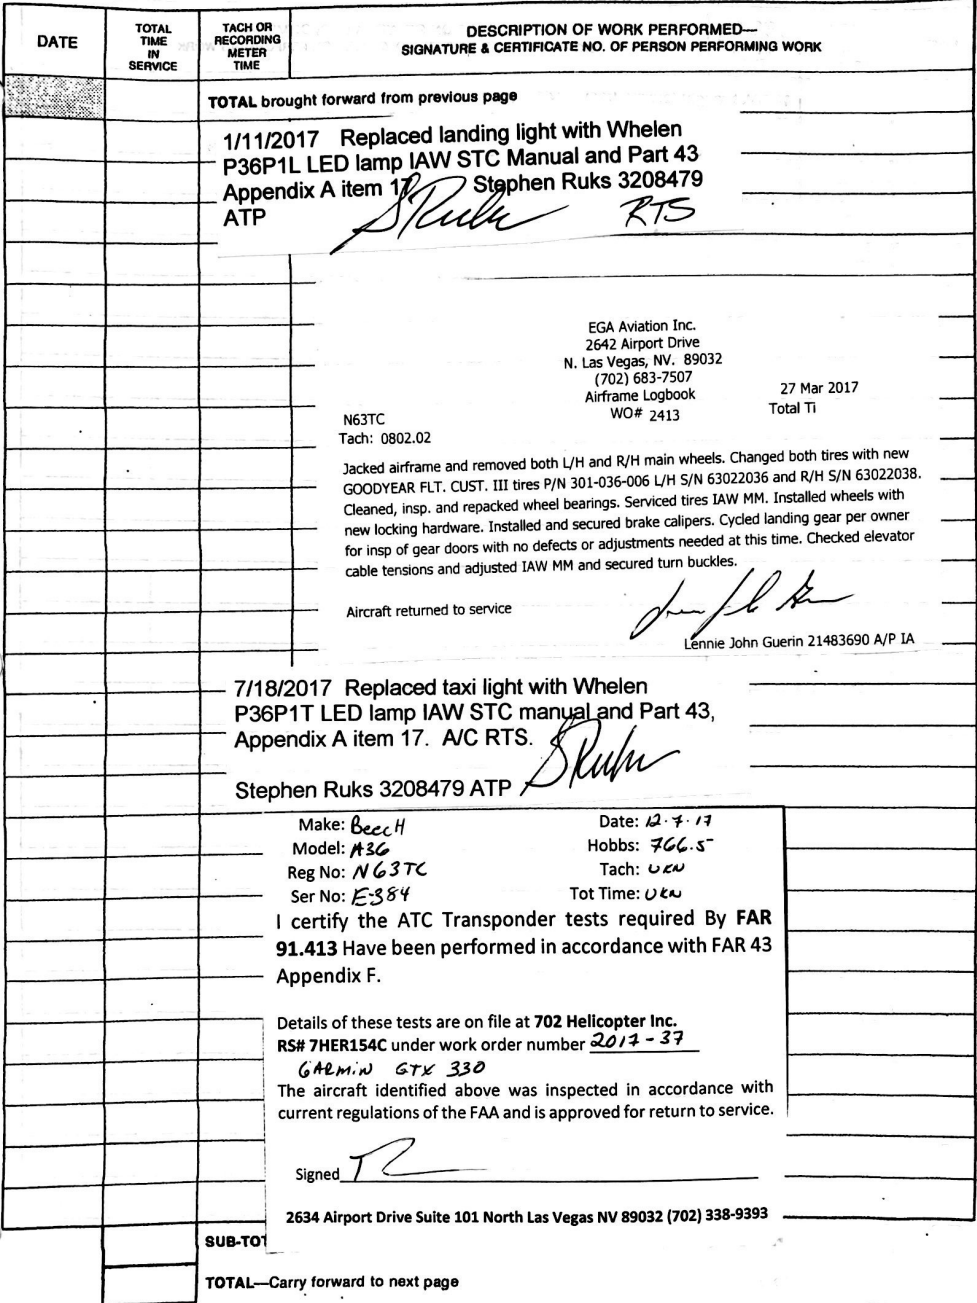 DATE
TOTAL
TIME
IN
SERVICE
TACH OR
RECORDING
METER
TIME
DESCRIPTION OF WORK PERFORMED—
SIGNATURE & CERTIFICATE NO. OF PERSON PERFORMING WORK
TOTAL brought forward from previous page
1/11/2017 Replaced landing light with Whelen
P36P1L LED lamp IAW STC Manual and Part 43
Appendix A item 17. Stephen Ruks 3208479
ATP RTS
EGA Aviation Inc.
2642 Airport Drive
N. Las Vegas, NV. 89032
(702) 683-7507
Airframe Logbook 27 Mar 2017
WO# 2413 Total Ti
N63TC
Tach: 0802.02
Jacked airframe and removed both L/H and R/H main wheels. Changed both tires with new
GOODYEAR FLT. CUST. III tires P/N 301-036-006 L/H S/N 63022036 and R/H S/N 63022038.
Cleaned, insp. and repacked wheel bearings. Serviced tires IAW MM. Installed wheels with
new locking hardware. Installed and secured brake calipers. Cycled landing gear per owner
for insp of gear doors with no defects or adjustments needed at this time. Checked elevator
cable tensions and adjusted IAW MM and secured turn buckles.
Aircraft returned to service
Lennie John Guerin 21483690 A/P IA
7/18/2017 Replaced taxi light with Whelen
P36P1T LED lamp IAW STC manual and Part 43,
Appendix A item 17. A/C RTS.
Stephen Ruks 3208479 ATP
Make: BeecH Date: 12.7.17
Model: A36 Hobbs: 766.5
Reg No: N63TC Tach: UKN
Ser No: E-384 Tot Time: UKN
I certify the ATC Transponder tests required By FAR
91.413 Have been performed in accordance with FAR 43
Appendix F.
Details of these tests are on file at 702 Helicopter Inc.
RS# 7HER154C under work order number 2017-37
GARMIN GTX 330
The aircraft identified above was inspected in accordance with
current regulations of the FAA and is approved for return to service.
Signed
2634 Airport Drive Suite 101 North Las Vegas NV 89032 (702) 338-9393
SUB-TOT
TOTAL—Carry forward to next page